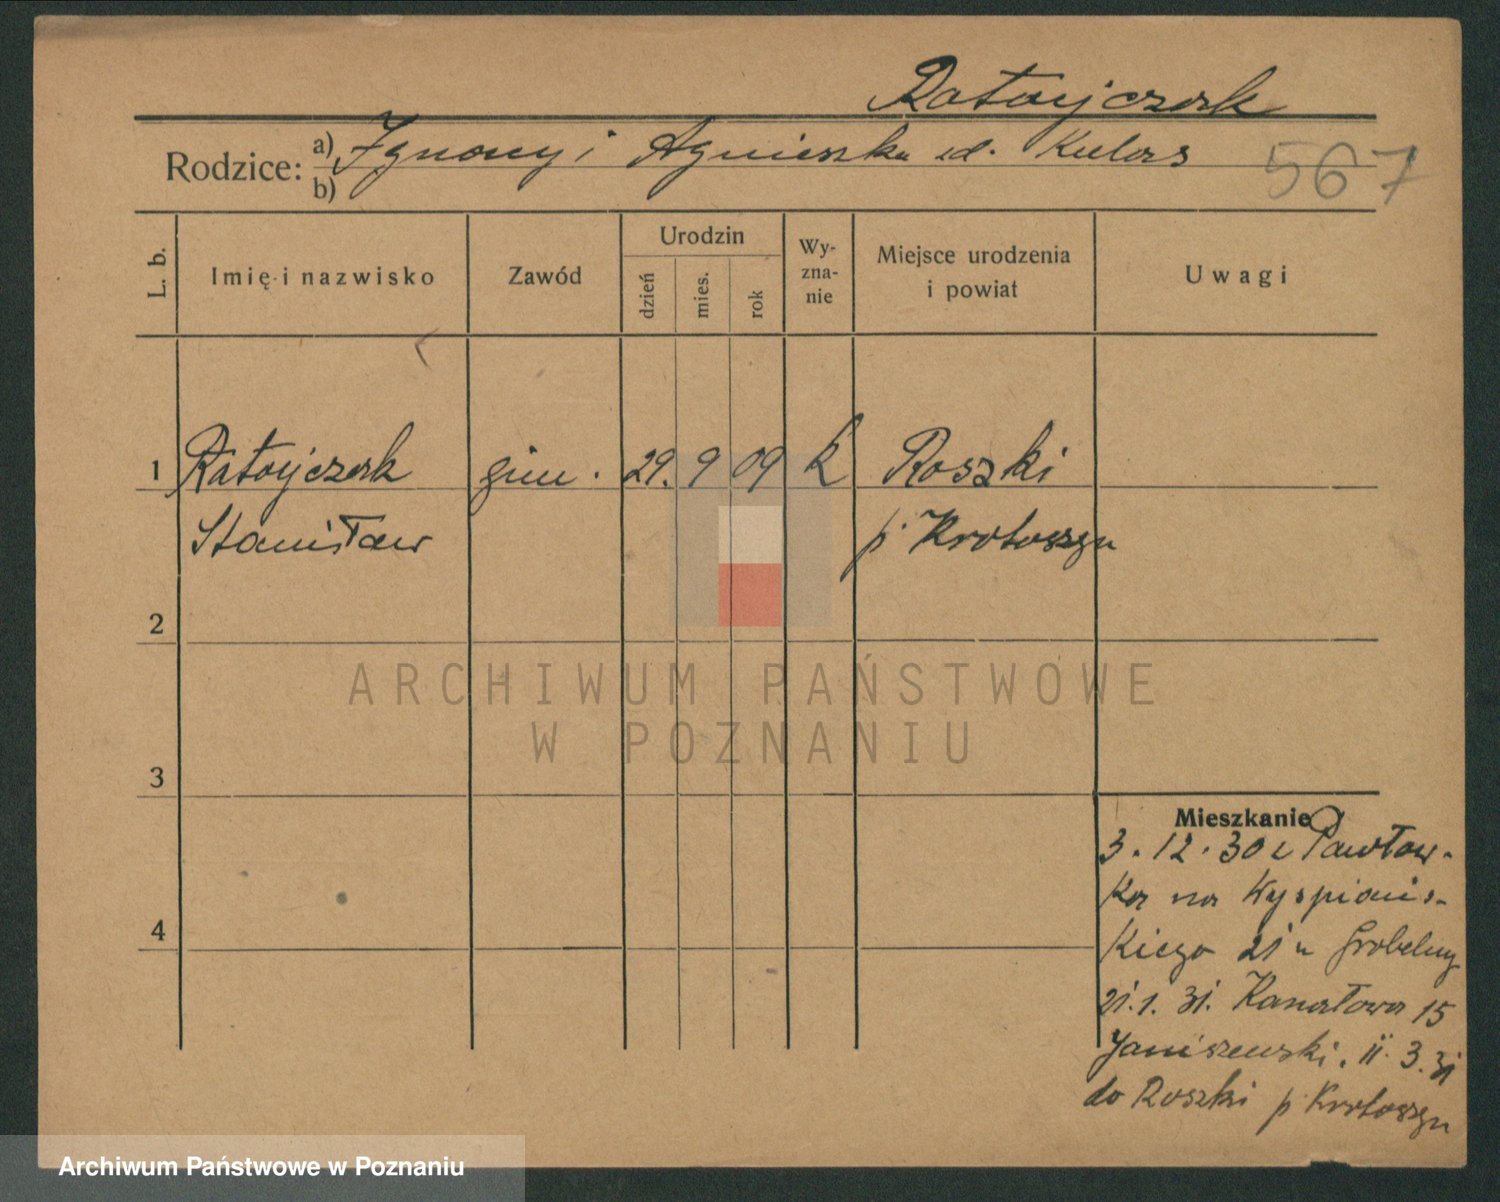 Ratajczak
Rodzice: a) Ignacy i Agnieszka zd. Kulas
b)
567
L. b.
Imię i nazwisko
Zawód
Urodzin
dzień
mies.
rok
Wy-
zna-
nie
Miejsce urodzenia
i powiat
Uwagi
1 Ratajczak gim. 29. 9 09 k Roszki
Stanisław p. Krotoszyn
2
3
4
Mieszkanie
3.12.30 z Pawłow-
ka na Wyspiańs-
kiego 21 u Grobelny
21.1.31. Kanałowa 15
Janiszewski. 11.3.31
do Roszki p. Krotoszyn
ARCHIWUM PAŃSTWOWE
W POZNANIU
Archiwum Państwowe w Poznaniu